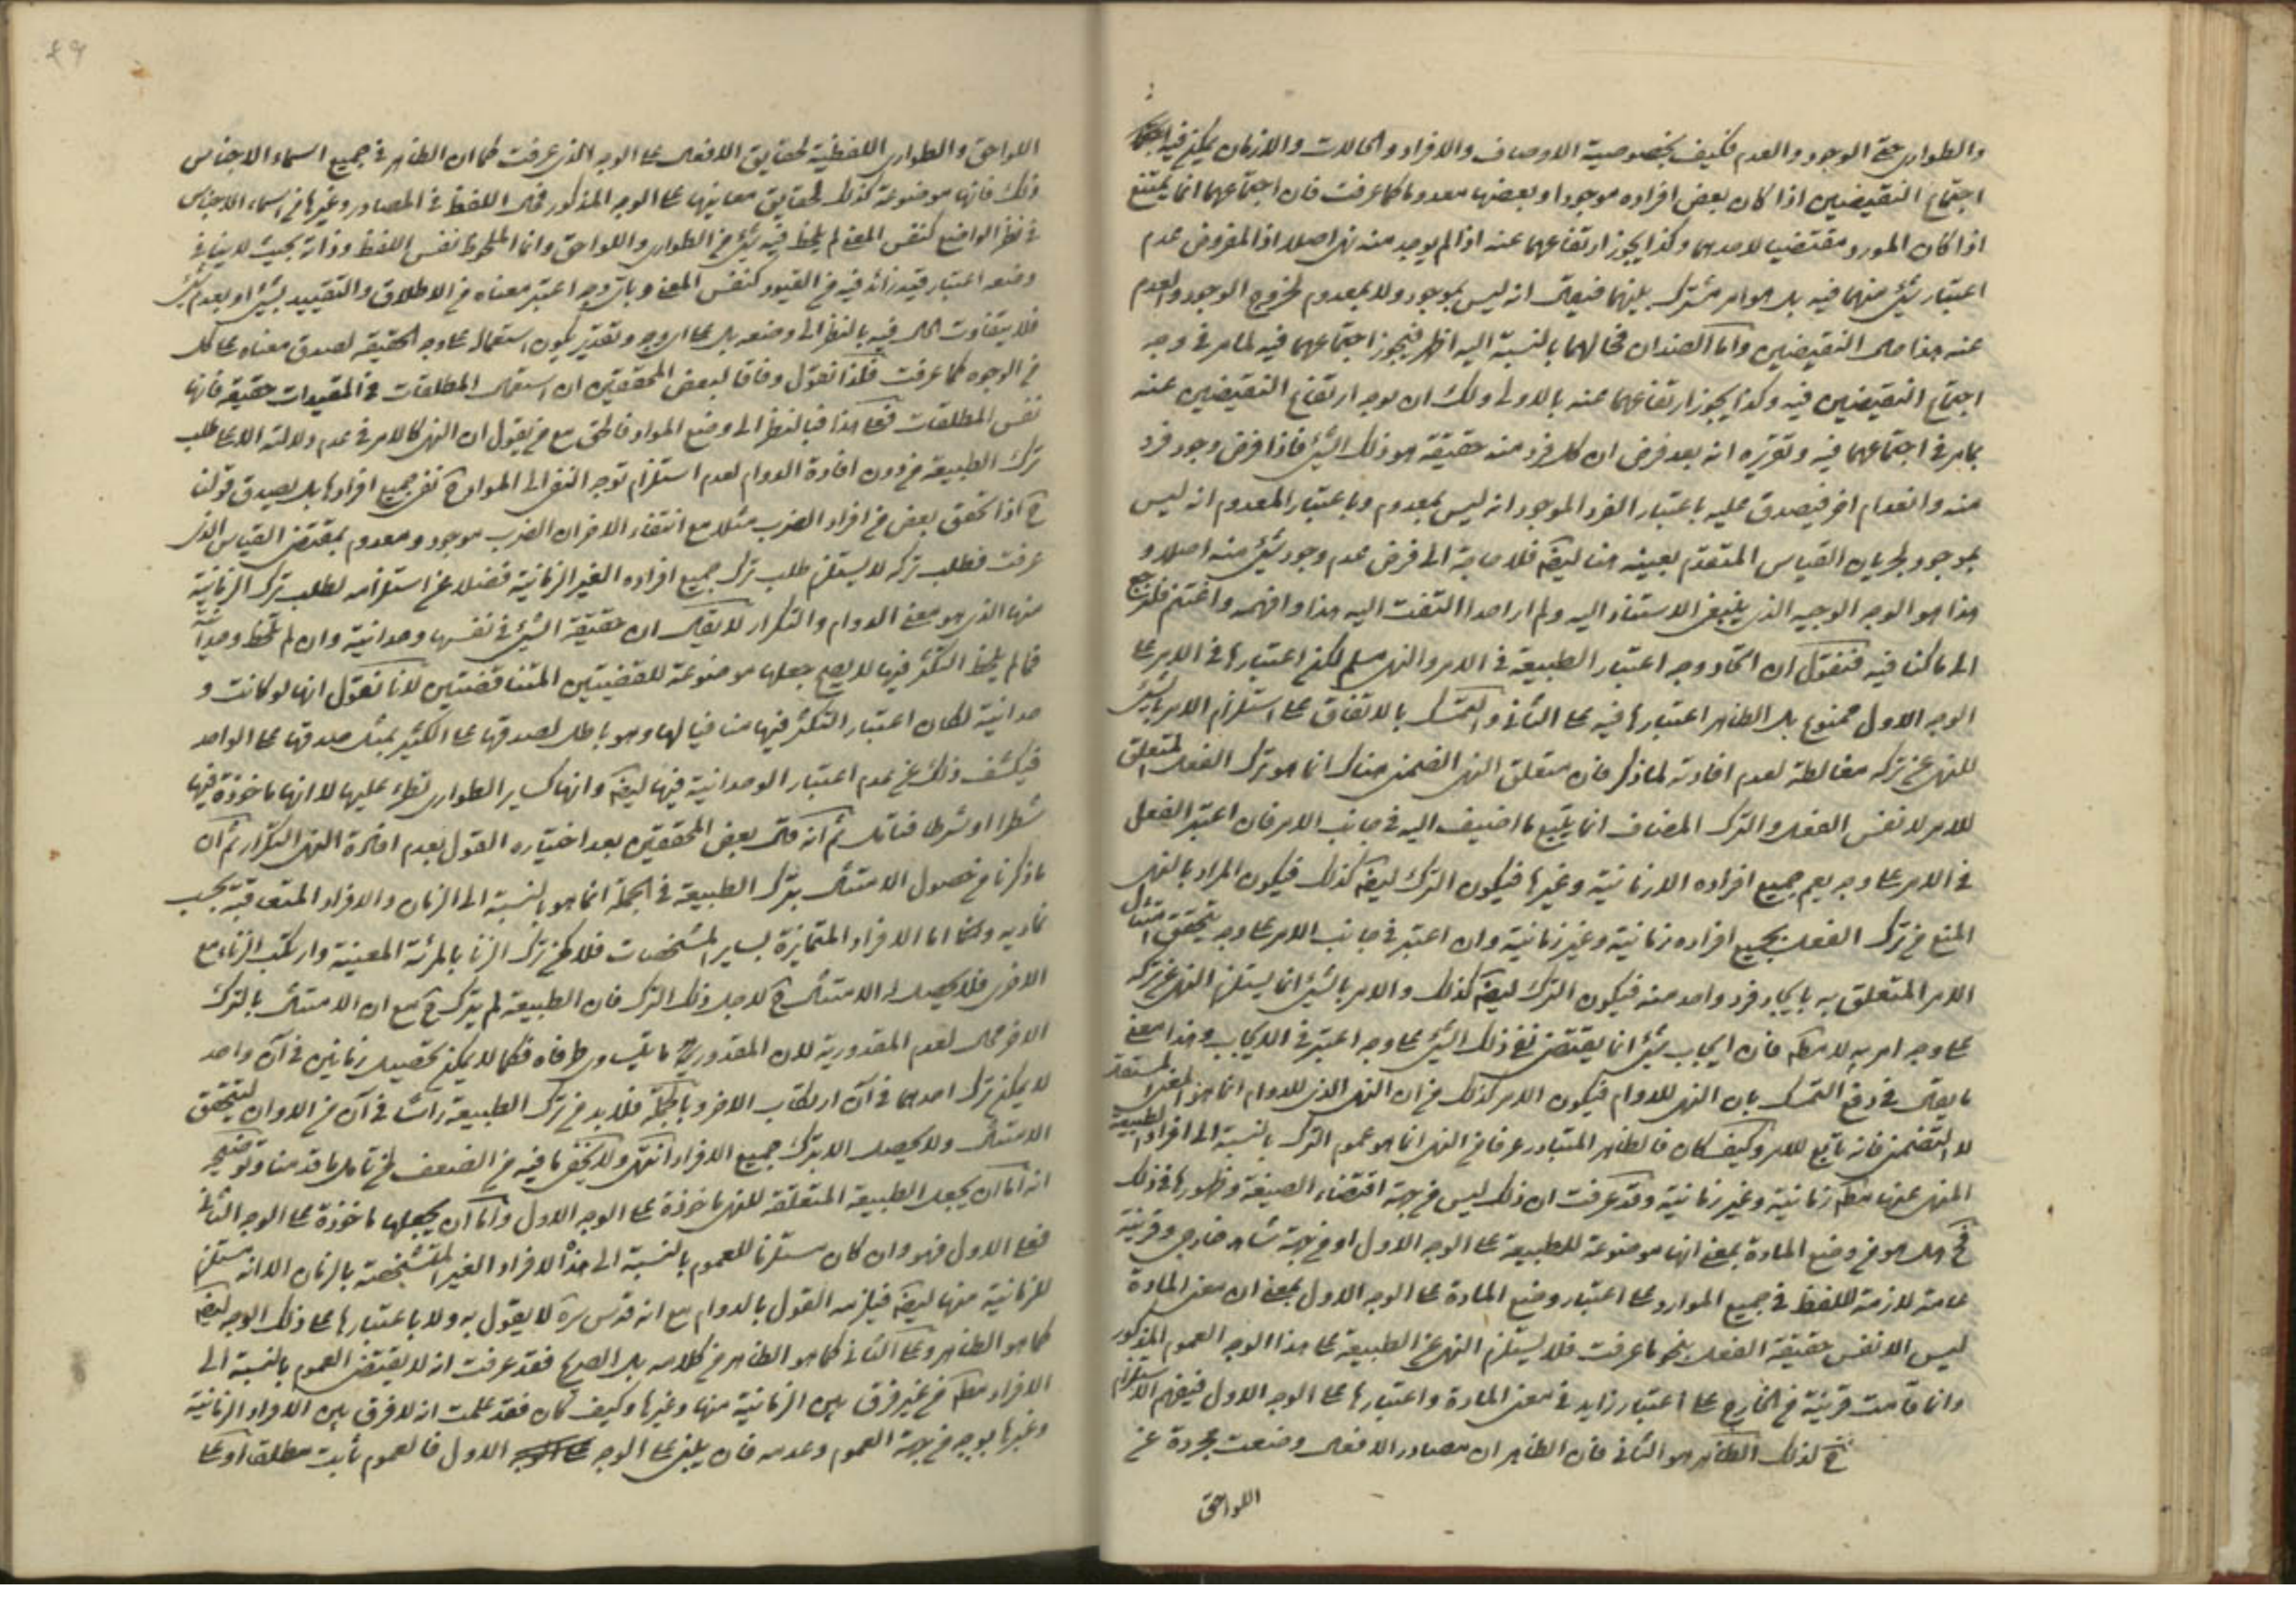 والطوارى حتى الوجود والعدم فكيف بخصوصية الاوصاف والافراد والحالات والازمان يمكن فيه
اجتماع النقيضين اذا كان بعض افراده موجودا وبعضها معدوما كما عرفت فان اجتماعهما انما يمتنع
اذا كان المورد مقتضيا لاحدهما وكذا يجوز ارتفاعهما عنه اذا لم يوجد منه نهى اصلا اذ المفروض عدم
اعتبار شئ منهما فيه بل هو امر مشترك بينهما فيقال انه ليس بموجود ولا بمعدوم لخروج الوجود والعدم
عنه هذا حال النقيضين واما الضدان فحالهما بالنسبة اليه اظهر فيجوز اجتماعهما فيه لما مر فى وجه
اجتماع النقيضين فيه وكذا يجوز ارتفاعهما عنه بالاولى ولك ان توجه ارتفاع النقيضين عنه
بما مر فى اجتماعهما فيه وتقريره انه بعد فرض ان كل فرد منه حقيقة هو ذلك الشئ فاذا فرض وجود فرد
منه وانعدام اخر فيصدق عليه باعتبار الفرد الموجود انه ليس بمعدوم وباعتبار المعدوم انه ليس
بموجود لجريان القياس المتقدم بعينه هنا ايضا فلا حاجة الى فرض عدم وجود شئ منه اصلا و
هذا هو الوجه الوجيه الذى ينبغى الاستناد اليه ولم ار احدا التفت اليه هذا وافهمه واغتنم فلنرجع
الى ما كنا فيه فنقول ان اتحاد وجه اعتبار الطبيعة فى الامر والنهى مسلم لكن اعتبارها فى الامر على
الوجه الاول ممنوع بل الظاهر اعتبارها فيه على الثانى والتمسك بالاتفاق على استلزام الامر بالشئ
للنهى عن تركه مغالطة لعدم افادته لما ذكر فان متعلق النهى الضمنى هناك انما هو ترك الفعل المتعلق
للامر لا نفس الفعل والترك المضاف انما يتبع ما اضيف اليه فى جانب الامر فان اعتبر الفعل
فى الامر على وجه يعم جميع افراده الازمانية وغيرها فيكون الترك ايضا كذلك فيكون المراد بالنهى
المنع من ترك الفعل بجميع افراده زمانية وغير زمانية وان اعتبر فى جانب الامر على وجه يتحقق امتثال
الامر المتعلق به بايجاد فرد واحد منه فيكون الترك ايضا كذلك والامر بالشئ انما يستلزم النهى عن تركه
على وجه امر به لا مطلقا فان ايجاب شئ انما يقتضى نفى ذلك الشئ على وجه اعتبر فى الايجاب وهذا معنى
ما يقال فى دفع التمسك بان النهى للدوام فيكون الامر كذلك من ان النهى الذى للدوام انما هو النهى المستقل
لا التضمنى فانه تابع للامر وكيف كان فالظاهر المتبادر عرفا من النهى انما هو عموم الترك بالنسبة الى افراد الطبيعة
المنهى عنها مطلقا زمانية وغير زمانية وقد عرفت ان ذلك ليس من جهة اقتضاء الصيغة وظهورها فى ذلك
فح هل هو من وضع المادة بمعنى انها موضوعة للطبيعة على الوجه الاول او من جهة شاهد خارجى وقرينة
عامة لازمة للفظ فى جميع الموارد على اعتبار وضع المادة على الوجه الاول بمعنى ان معنى المادة
ليس الا نفس حقيقة الفعل بنحو ما عرفت فلا يستلزم النهى عن الطبيعة على هذا الوجه العموم المذكور
وانما قامت قرينة من الخارج على اعتبار زايد فى معنى المادة واعتبارها على الوجه الاول فيفهم الاستلزام
ح لذلك الظاهر هو الثانى فان الظاهر ان مصادر الافعال وضعت مجردة عن
اللواحق
٤٩
اللواحق والطوارى اللفظية لحقايق الافعال على الوجه الذى عرفت كما ان الظاهر فى جميع اسماء الاجناس
ذلك فانها موضوعة كذلك لحقايق معاينها على الوجه المذكور فحال اللفظ فى المصادر وغيرها من اسماء الاجناس
فى نظر الواضع كنفس المعنى لم يلحظ فيه شئ من الطوارى واللواحق وانما الملحوظ نفس اللفظ وذاته بحيث لا ينافى
وضعه اعتبار قيد زائد فيه من القيود كنفس المعنى وباى وجه اعتبر معناه من الاطلاق والتقييد بشئ او بعدم شئ
فلا يتفاوت الحال فيه بالنظر الى وضعه بل على اى وجه وتقدير يكون استعماله على وجه الحقيقة لصدق معناه على كل
من الوجوه كما عرفت فلذا نقول وفاقا لبعض المحققين ان استعمال المطلقات فى المقيدات حقيقة فانها
نفس المطلقات فعلى هذا فبالنظر الى وضع المواد فالحق مع من يقول ان النهى كالامر فى عدم دلالته الا على طلب
ترك الطبيعة من دون افادة الدوام لعدم استلزام توجه النفى الى المواد ح نفى جميع افرادها بل يصدق قولنا
ح اذا تحقق بعض من افراد الضرب مثلا مع انتفاء الاخر ان الضرب موجود ومعدوم بمقتضى القياس الذى
عرفت فطلب تركه لا يستلزم طلب ترك جميع افراده الغير الزمانية فضلا عن استلزامه لطلب ترك الزمانية
منها الذى هو معنى الدوام والتكرار لا يقال ان حقيقة الشئ فى نفسها وحدانية وان لم تلحظ وحدانية
فما لم يلحظ التكثر فيها لا يصح جعلها موضوعة للقضيتين المتناقضتين لانا نقول انها لو كانت و
حدانية لكان اعتبار التكثر فيها منافيا لها وهو باطل لصدقها على الكثير بمثل صدقها على الواحد
فيكشف ذلك عن عدم اعتبار الوحدانية فيها ايضا وانها كساير الطوارى تطرء عليها لا انها ماخوذة فيها
شطرا او شرطا فتامل ثم انه قال بعض المحققين بعد اختياره القول بعدم افادة النهى التكرار ثم ان
ما ذكرنا من حصول الامتثال بترك الطبيعة فى الجملة انما هو بالنسبة الى الزمان والافراد المتعاقبة بحسب
تماديه واما الافراد المتمايزة بساير المشخصات فلا كمن ترك الزنا بالمرئة المعينة وارتكب الزناء مع
الاخرى فلا يحصل الامتثال ح لاجل ذلك الترك فان الطبيعة لم يترك ح مع ان الامتثال بالترك
الاخر محال لعدم المقدورية لان المقدور ما يتساوى طرفاه فكما لا يمكن تحصيل زنائين فى آن واحد
لا يمكن ترك احدهما فى آن ارتكاب الاخر وبالجملة فلا بد من ترك الطبيعة راسا فى آن من الاوان ليتحقق
الامتثال ولا يحصل الا بترك جميع الافراد انتهى ولا يخفى ما فيه من الضعف لمن تامل ما قدمنا وتوضيحه
انه اما ان يجعل الطبيعة المتعلقة للنهى ماخوذة على الوجه الاول واما ان يجعلها ماخوذة على الوجه الثانى
فعلى الاول فهو وان كان مستلزما للعموم بالنسبة الى هذه الافراد الغير المتشخصة بالزمان الا انه مستلزم
للزمانية منها ايضا فيلزمه القول بالدوام مع انه قدس سره لا يقول به ولا باعتبارها على ذلك الوجه ايضا
كما هو الظاهر وعلى الثانى كما هو الظاهر من كلامه بل الصريح فقد عرفت انه لا يقتضى العموم بالنسبة الى
الافراد مطلقا من غير فرق بين الزمانية منها وغيرها وكيف كان فقد علمت انه لا فرق بين الافراد الزمانية
وغيرها بوجه من جهة العموم وعدمه فان بنى على الوجه الاول فالعموم ثابت مطلقا او على